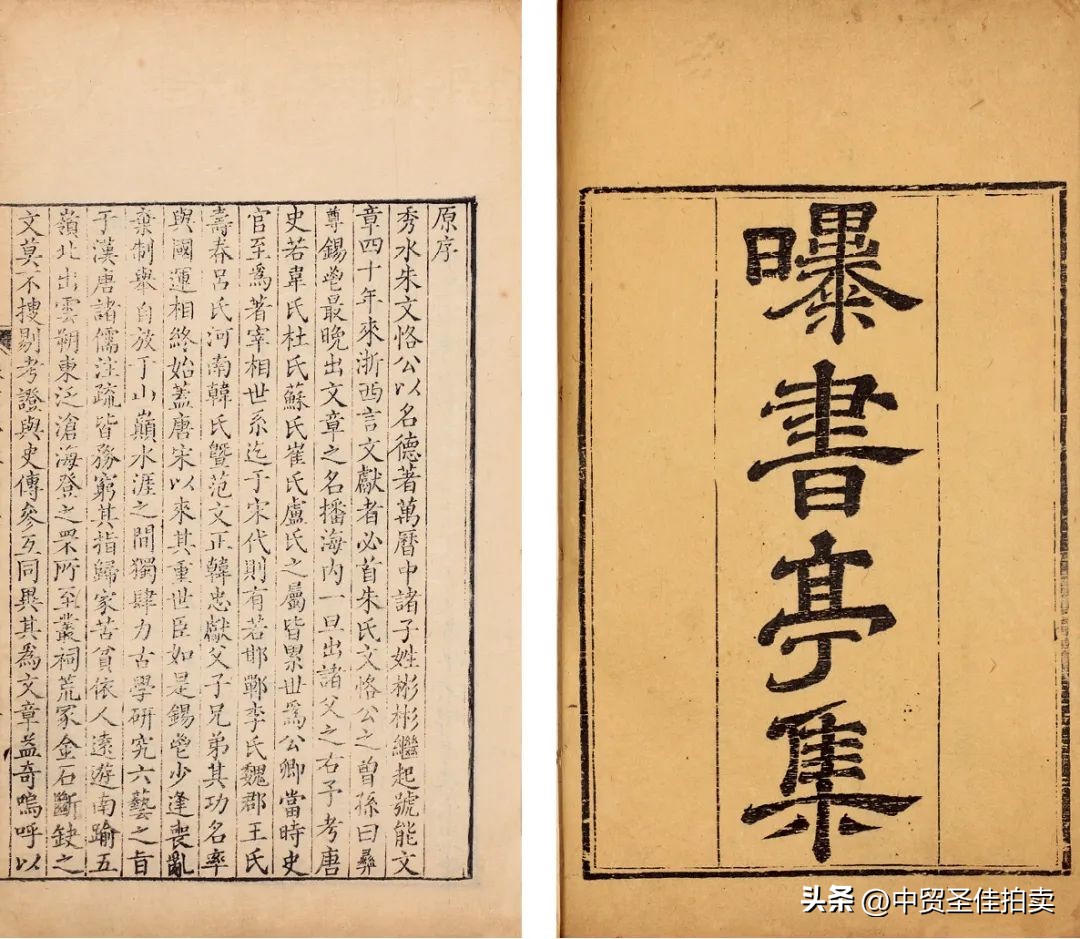 曝書亭集
原序
秀水朱文恪公以名德著萬曆中諸子姓彬彬繼起號能文
章四十年來浙西言文獻者必首朱氏文恪公之曾孫曰彝
尊錫鬯最晚出文章之名播海内一旦出諸父之右予考唐
史若韋氏杜氏蘇氏崔氏盧氏之屬皆累世爲公卿當時史
官至爲著宰相世系迄于宋代則有若邯鄲李氏魏郡王氏
壽春呂氏河南韓氏暨范文正韓忠獻父子兄弟其功名率
與國運相終始蓋唐宋以來其重世臣如是錫鬯少逢喪亂
棄制舉自放于山巔水涯之間獨肆力古學研究六藝之旨
于漢唐諸儒注疏皆務窮其指歸家苦貧依人遠遊南踰五
嶺北出雲朔東泛滄海登之罘所至叢祠荒冢金石斷缺之
文莫不搜剔考證與史傳參互同異其爲文章益奇嗚呼以
头条 @中贸圣佳拍卖